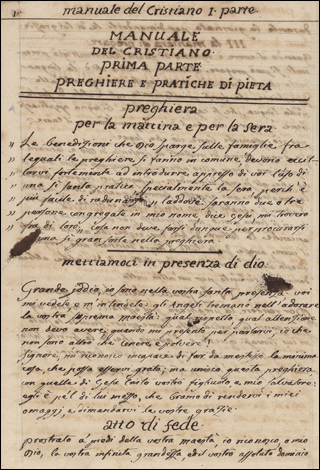 manuale del Cristiano I. parte.
MANUALE
DEL CRISTIANO.
PRIMA PARTE.
PREGHIERE E PRATICHE DI PIETA
preghiera
per la mattina e per la sera
Le benedizioni che Dio sparge sulle famiglie fra
lequali le preghiere si fanno in comune, devono ecci-
tarvi fortemente ad introdurre appresso di voi l'uso di
una sì santa pratica specialmente la sera, perchè è
più facile di radunarsi laddove saranno due o tre
persone congregate in mio nome, dice Gesù, mi troverò
fra di loro, cosa non deve farsi dunque per procurarsi
una sì gran sorte nella preghiera
mettiamoci in presenza di dio.
Grande Iddio, io sono nella vostra santa presenza, voi
mi vedete e m'intendete: gli Angeli tremano nell'adorare
la vostra suprema maestà: qual rispetto qual attenzione
non devo avere, quando mi presento per parlarvi, io che
non sono altro che cenere e polvere!
Signore, mi riconosco incapace di far da me stesso la minima
cosa, che possa esservi grata; ma unisco questa preghiera
con quella di Gesù Cristo vostro figliuolo e mio salvatore:
egli è pel di lui mezzo, che bramo di rendervi i miei
omaggj, e dimandarvi le vostre grazie.
atto di fede.
prostrato a' piedi della vostra maestà, io riconosco, o mio
Dio, la vostra infinita grandezza, ed il vostro assoluto dominio